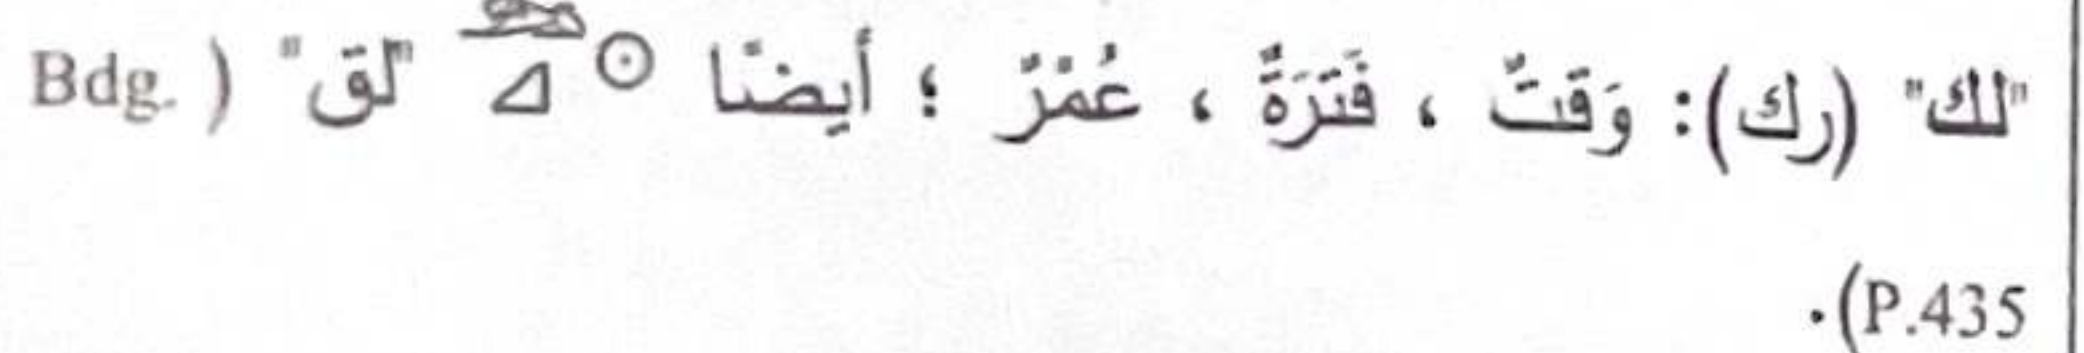 "لك" (رك): وَقَتٌ ، فَتَرَةٌ ، عُمْرٌ ؛ أيضًا "لق" (Bdg.
P.435).